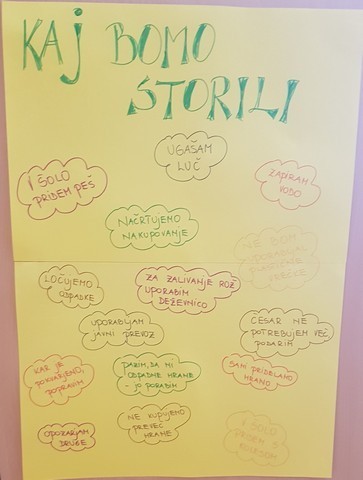 KAJ BOMO
STORILI
UGAŠAM
LUČ
V ŠOLO
PRIDEM PEŠ
ZAPIRAM
VODO
NAČRTUJEMO
NAKUPOVANJE
NE BOM
VREČKE
LOČUJEMO
ODPADKE
ZA ZALIVANJE ROŽ
UPORABIM
DEŽEVNICO
UPORABLJAM
JAVNI PREVOZ
ČESAR NE
POTREBUJEM VEČ
PODARIM
KAR JE
POKVARJENO,
POPRAVIM
PAZIM, DA NI
ODPADNE HRANE
- JO PORABIM
SAMI PRIDELAMO
HRANO
OPOZARJAM
DRUGE
NE KUPUJEMO
PREVEČ
HRANE
V ŠOLO
PRIDEM S
KOLESOM